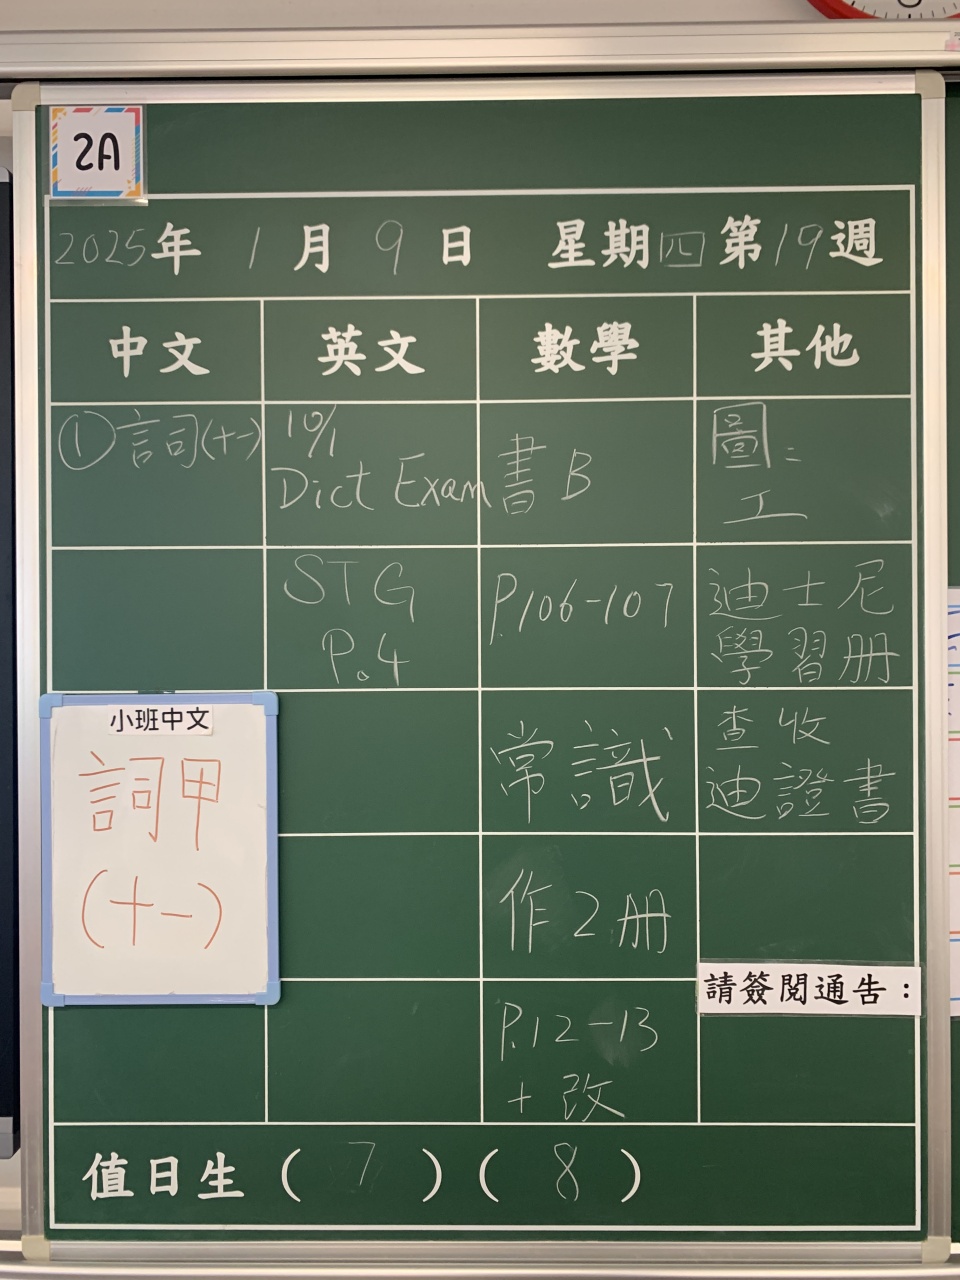 2A
2025年 1月 9日 星期四 第19週
中文 英文 數學 其他
①詞(十一)
10/1
Dict Exam
STG
P.4
書B
P.106-107
常識
作2冊
P.12-13
+改
圖:
工
迪士尼
學習冊
查收
迪證書
請簽閱通告:
小班中文
詞甲
(十一)
值日生(7)(8)